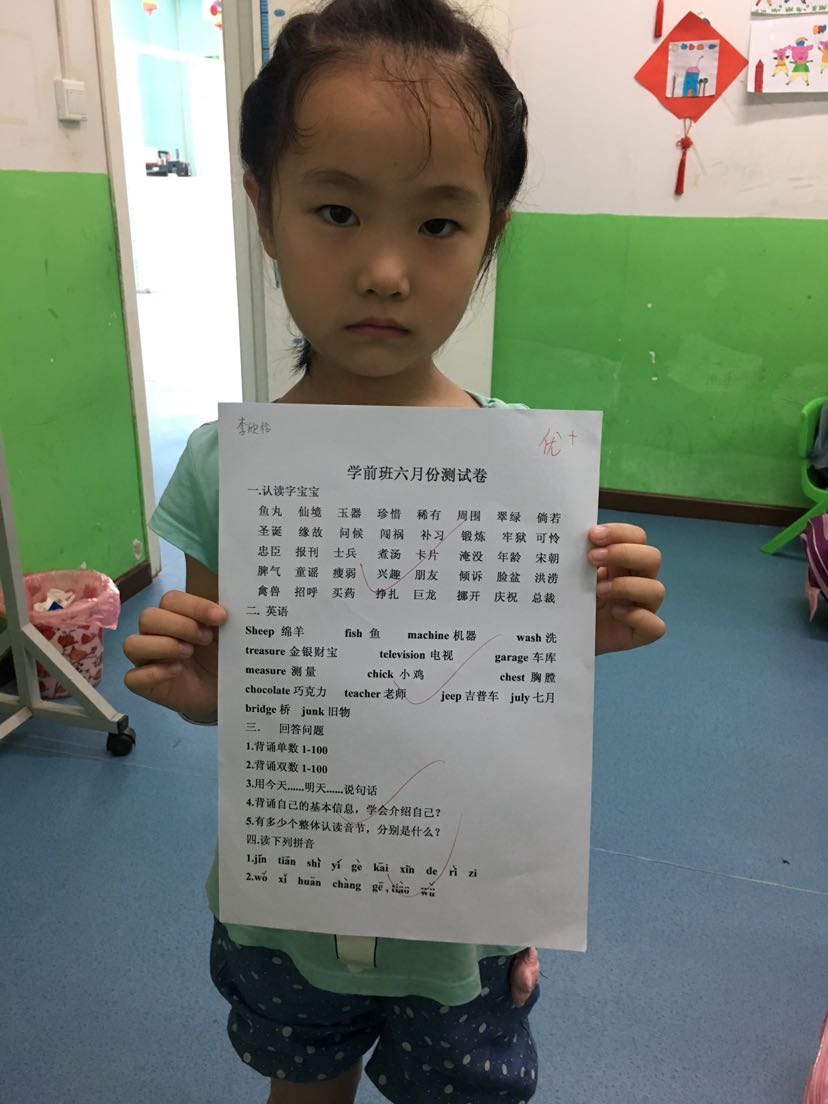 李欣怡
优+
学前班六月份测试卷
一.认读字宝宝
鱼丸 仙境 玉器 珍惜 稀有 周围 翠绿 倘若
圣诞 缘故 问候 闯祸 补习 锻炼 牢狱 可怜
忠臣 报刊 士兵 煮汤 卡片 淹没 年龄 宋朝
脾气 童谣 瘦弱 兴趣 朋友 倾诉 脸盆 洪涝
禽兽 招呼 买药 挣扎 巨龙 挪开 庆祝 总裁
二. 英语
Sheep 绵羊 fish 鱼 machine 机器 wash 洗
treasure 金银财宝 television 电视 garage 车库
measure 测量 chick 小鸡 chest 胸膛
chocolate 巧克力 teacher 老师 jeep 吉普车 july 七月
bridge 桥 junk 旧物
三. 回答问题
1.背诵单数 1-100
2.背诵双数 1-100
3.用今天......明天......说句话
4.背诵自己的基本信息，学会介绍自己？
5.有多少个整体认读音节，分别是什么？
四.读下列拼音
1.jīn tiān shì yí gè kāi xīn de rì zi
2.wǒ xǐ huān chàng gē , tiào wǔ